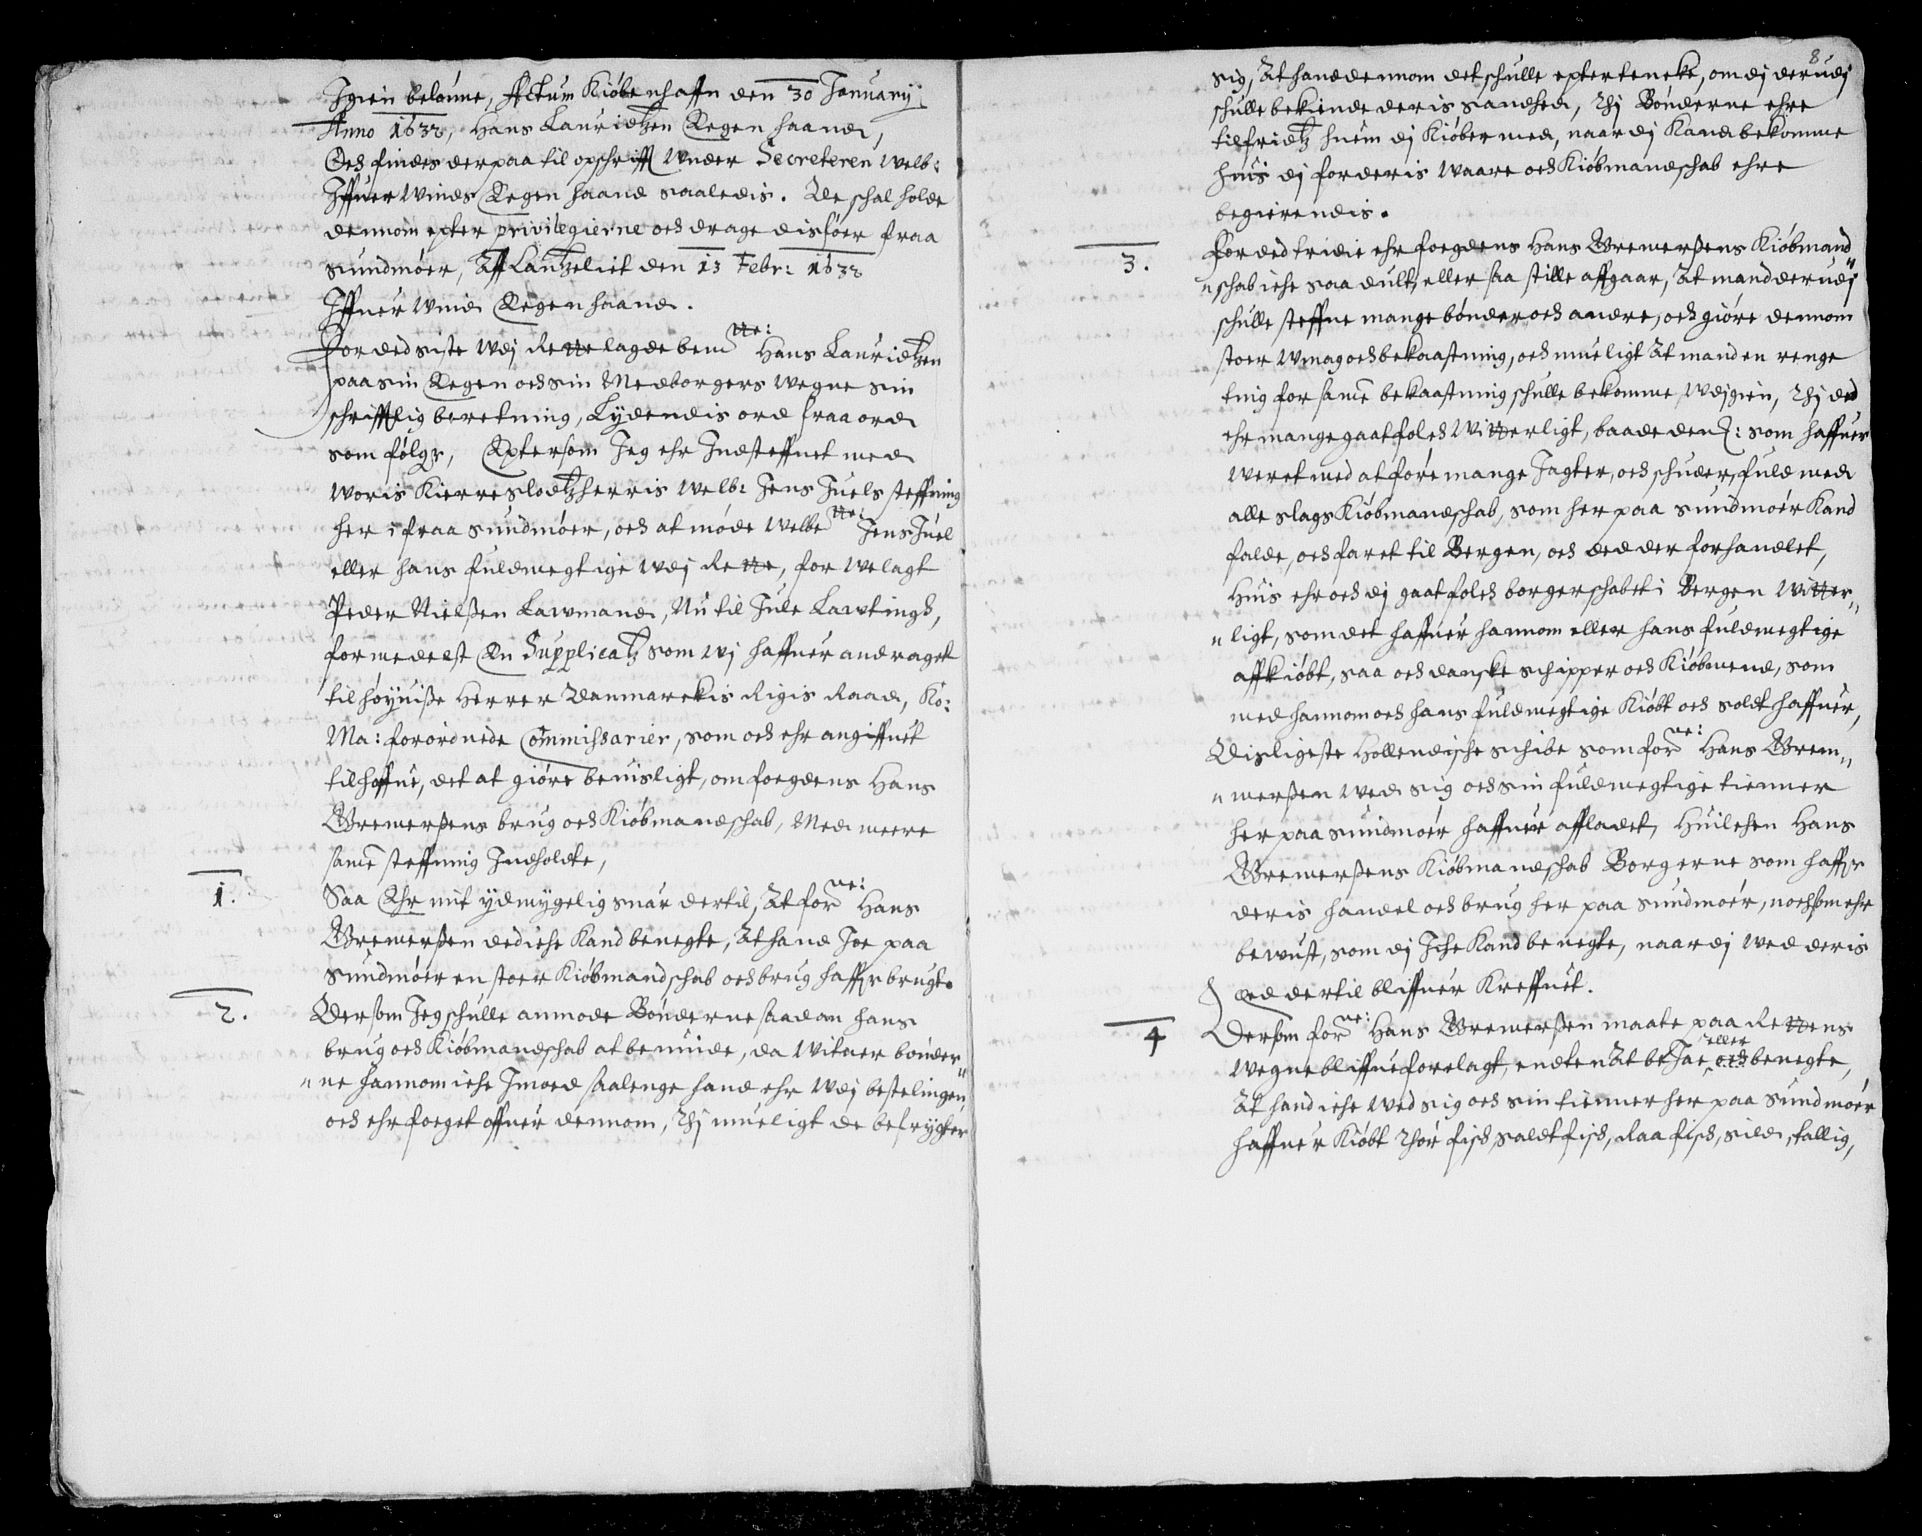 Igien belønne, Actum Kiøbenhaffn den 30 January
Anno 1632, Hans Lauridtzen Eegen haand,
Och findes derpaa til opschrifft Under Secreteren Welb:
Iffuer Winds Eegen haand saaledis. De schal holde
dennom epter privilegierne och drage dis føer fraa
Sundmøer, Aff Cantzeliet den 13 Febr: 1632
Iffuer Wind Eegen haand.
For ded siste Udj Rette lagde bem:te Hans Lauridtzen
paa sin Eegen och sin Medborgers Wegne sin
schrifftlig beretning, Lydendis ord fraa ord
som følger, Eptersom Jeg ehr Indsteffnet med
Woris Kierre Slodtzherris Welb: Jens Juels steffning
her ifraa Sundmøer, och at møde Welbe:te Jens Juel
eller hans fuldmegtige Udj Rette, for Welagt
Peder Nielßen Lawmand, Nu til Jule Lawtingh,
formedelst En Supplicatz som Wj haffuer andraget
til høyuiße Herrer Danmarckis Rigis Raad, Ko:
Ma: forordnede Commissarier, som och ehr angiffuet
tilhoffue, det at giøre beuisligt, om foegdens Hans
Bremerßens brug och Kiøbmandschab, Med meere
same steffning Indholdte,
1. Saa Ehr mit ydmygelig suar dertil, At for:ne Hans
Bremerßen ded iche Kand benegte, At hand Joe paa
Sundmøer en stoer Kiøbmandschab och brug haffer brugt.
2. Dersom Jeg schulle anmode Bønderne saadan hans
brug och Kiøbmandschab at beuinde, da Witner bønder"
"ne hannom iche Imoed saalenge hand ehr Udj bestelingen
och ehr foeget offuer dennom, Thj mueligt de befrygter
8
sig, At hand dennom det schulle eptertencke, om dj derudj
schulle bekiende deris sandhed, Thj Bønderne ehre
tilfridtz huem dj Kiøber med, naar dj Kand bekomme
huis dj for deris Waare och Kiøbmandschab ehre
begierendis.
3. For ded tridie ehr foegdens Hans Bremerßens Kiøbmand"
"schab iche saa dult, eller saa stille affgaar, At mand derudj
schulle steffne mange bønder och andre, och giøre dennom
stoer Wmag och bekaastning, och mueligt At mand en renge
ting for same bekaastning schulle bekomme Udjgien, Thj ded
ehr mange gaat folch Witterligt, baade den: som haffuer
Weret med at føre mange Jagter, och schuder, fuld med
alle slags Kiøbmandschab, som her paa Sundmøer Kand
falde, och faret til Bergen, och ded der forhandlet,
Huis ehr och dj gaat folch borgerschabet i Bergen Witter"
"ligt, som det haffuer hannom eller hans fuldmegtige
affkiøbt, saa och danske schipper och Kiøbmend, som
med hannom och hans fuldmegtige Kiøbt och soldt haffuer,
Disligeste Hollendische schibe som for:ne Hans Brem"
"merßen Wed sig och sin fuldmegtige tienner
her paa Sundmøer haffuer affladet, Huilchen Hans
Bremerßens Kiøbmandschab Borgerne som haffer
deris handel och brug her paa Sundmøer, noch som ehr
bewust, som dj Iche Kand benegte, naar dj Wed deris
Eed dertil bliffuer Kreffuet.
4 Dersom for:ne Hans Bremerßen maate paa Rettens
Wegne bliffue forelagt, endten At be Jae, eller och benegte,
At hand iche Wed sig och sin tienner her paa Sundmøer
haffuer Kiøbt Thør fisch, saldt fisch, Raa fisch, sild, tallig,